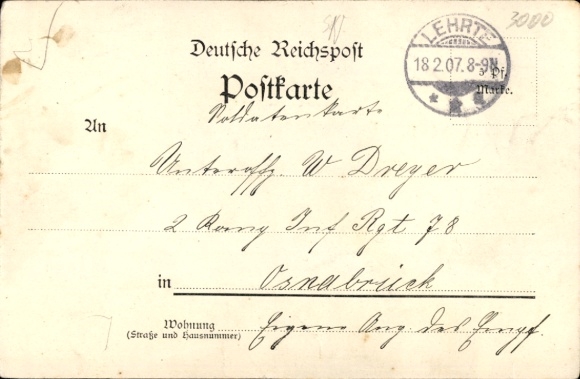 3000
Deutsche Reichspost
LEHRTE
18.2.07. 8-9N
5 Pf.
Marke.
Postkarte
Soldatenkarte
An
Unteroffz. W Dreyer
2 Komp Inf Rgt 78
in Osnabrück
Wohnung Eigene Ang. des Empf.
(Straße und Hausnummer)